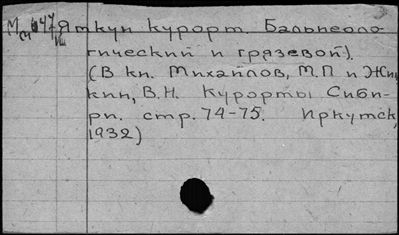 Яткун курорт. Бальнеоло-
гический и грязевой).
(В кн. Михайлов, М.П. и Жин-
кин, В.Н. Курорты Сиби-
ри. стр. 74-75. Иркутск,
1932)